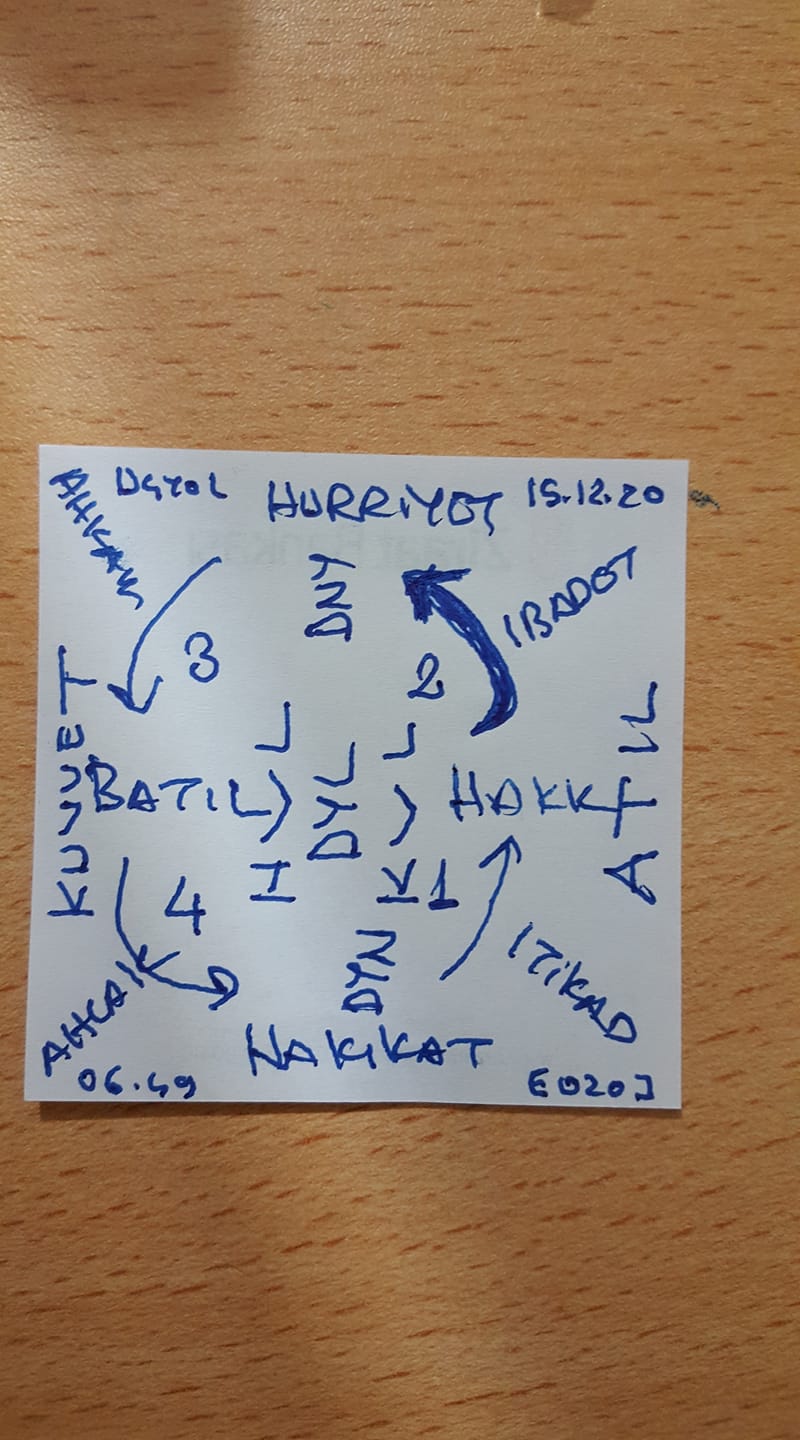 DGYOL HURRİYET 15.12.20
AHKAM
İBADET
DNY
3
2
KUVVET
BATIL
HAKK
ATIL
H > L
DYL
K > L
4
1
DYN
AHLAK
ITİKAD
HAKİKAT
06.49